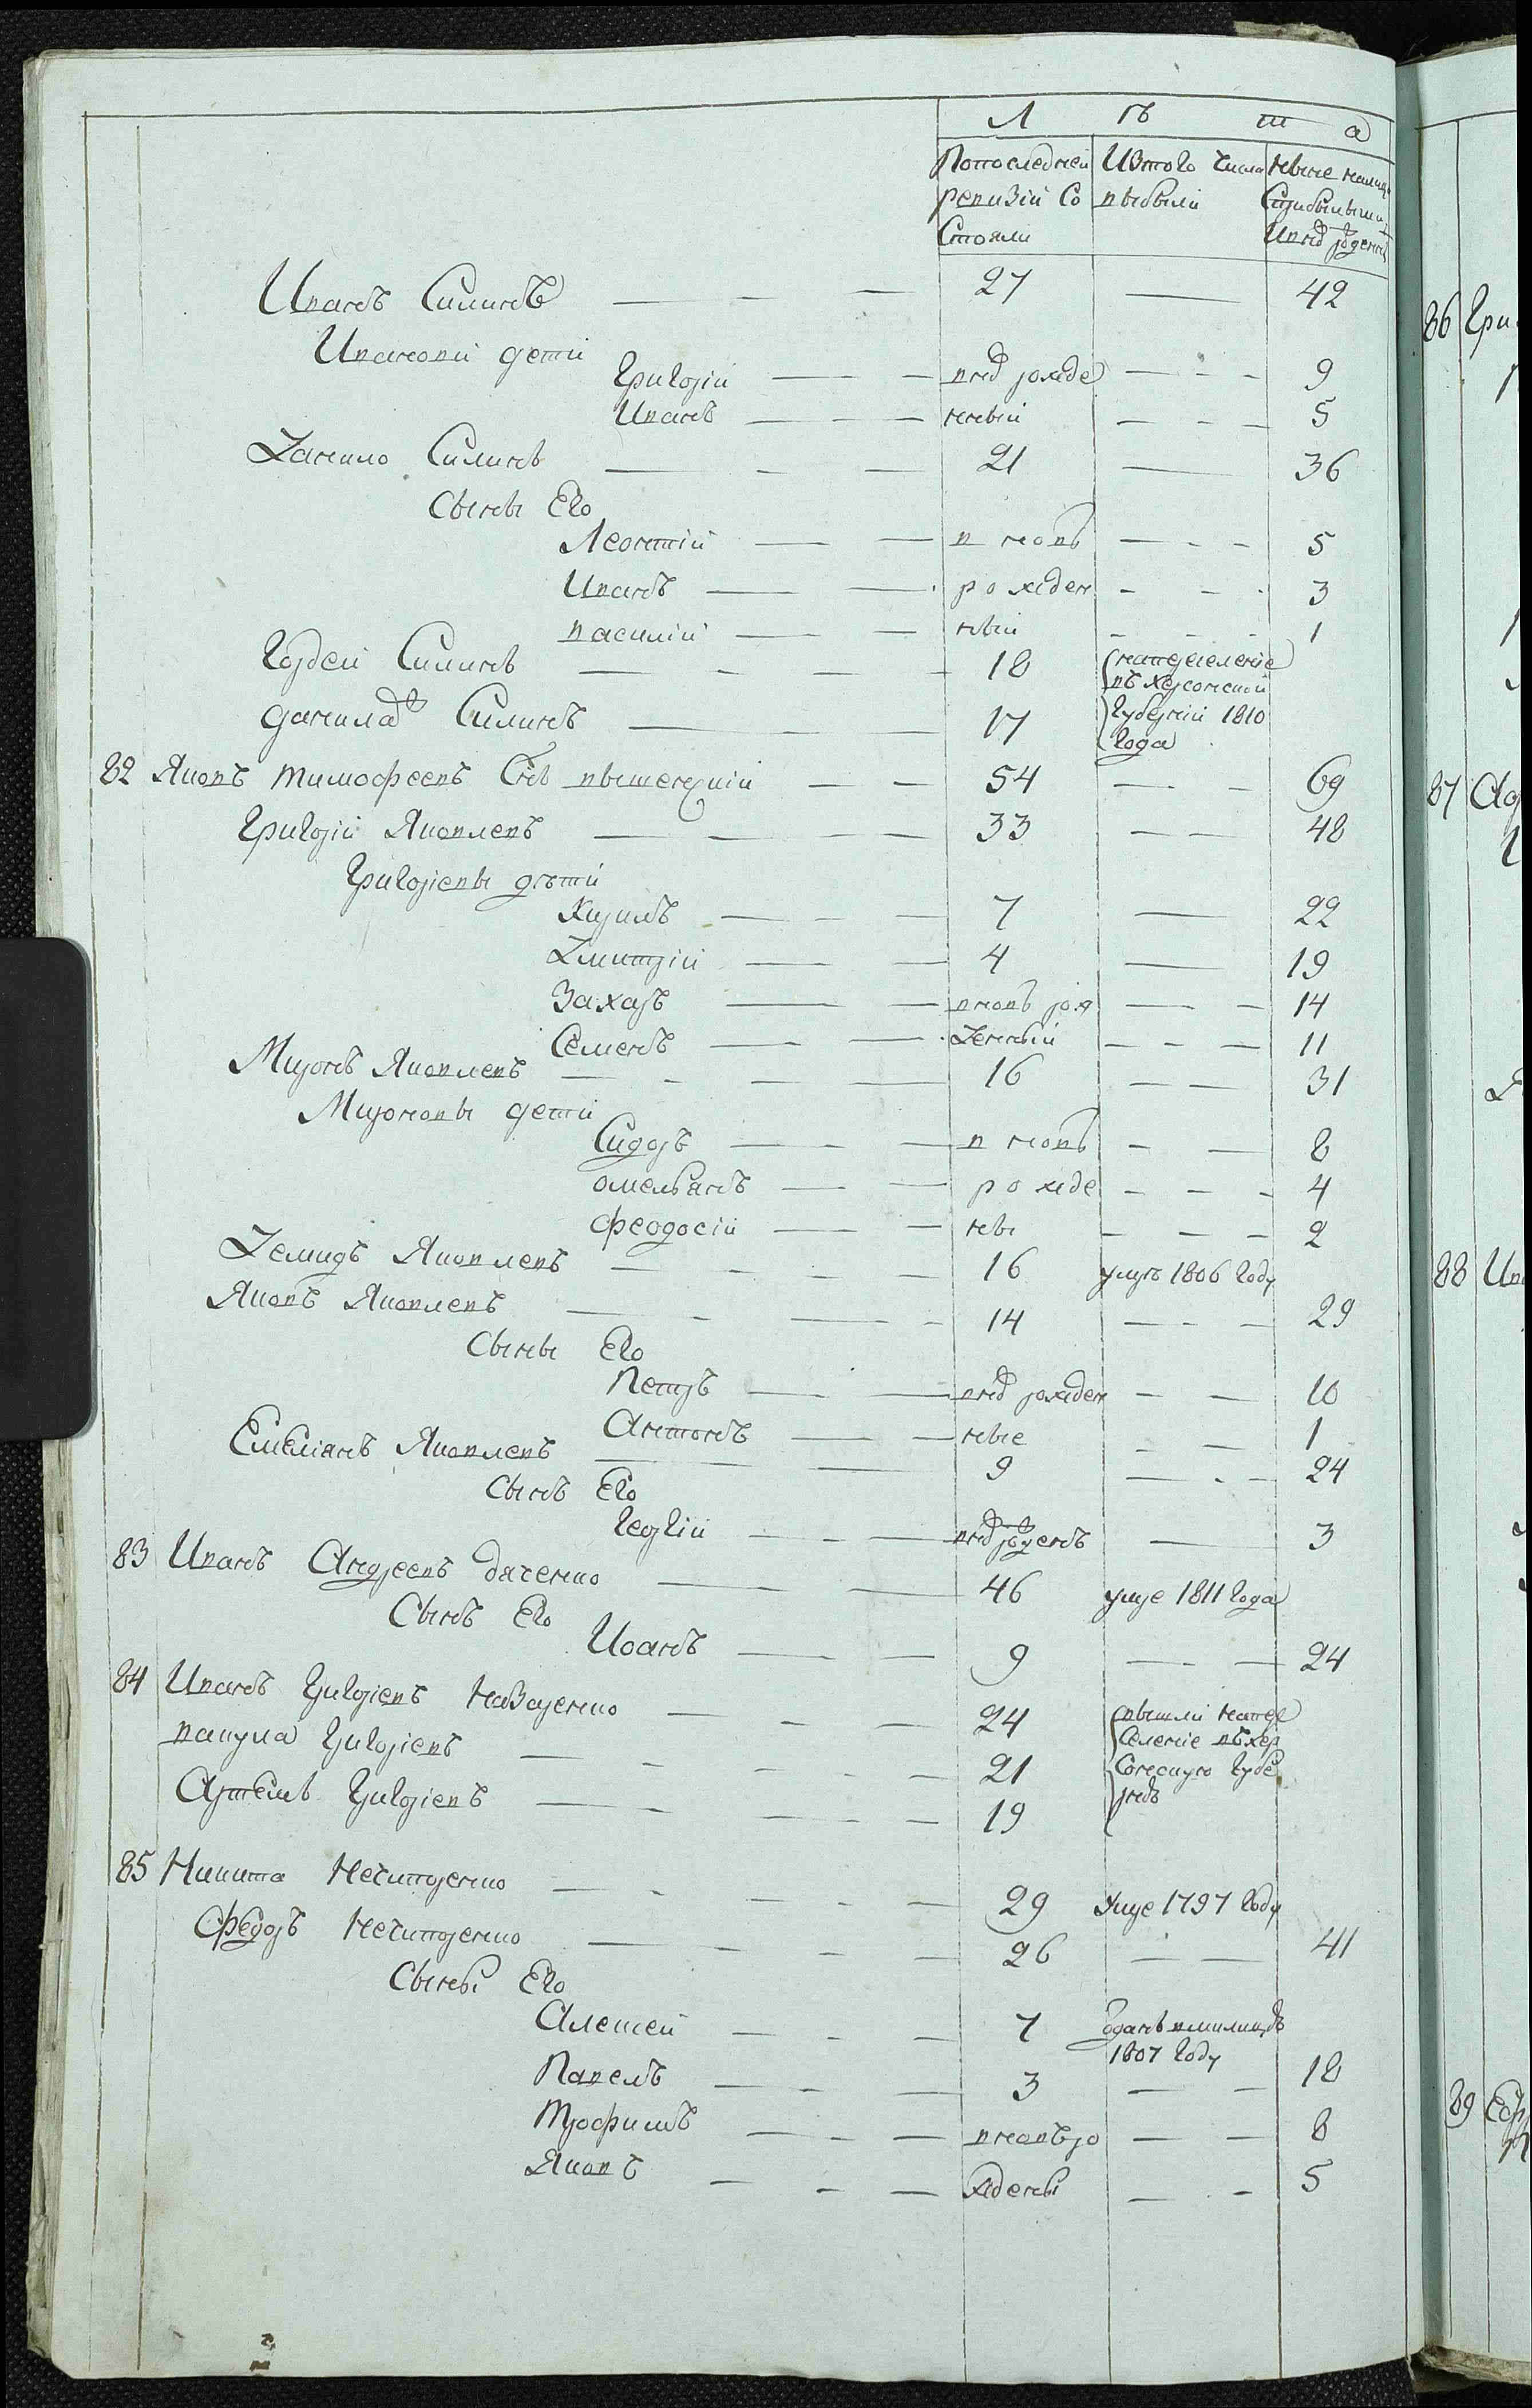 Л ѣ т а
По последней Изтого числа Ныне налицо
ревизiи Со выбыли Сприбылыми
Стояли И внов рожденными
Иванъ Силинъ — 27 — 42
Ивановы дети
Григорiй — внов рожде — 9
Иванъ — нный — 5
Данило Силинъ — 21 — 36
Сыны Его
Леонтiй — в новъ — 5
Иванъ — рожден — 3
василiй — ный — 1
Гордей Силинъ — 18 напереселенiе
въ херсонской
данила Силинъ — 17 Губернiи 1810
Года
82 Яковъ тимофеевъ Сынъ — 54 — 69
Григорiй Яковлевъ — 33 — 48
Григорiевы дѣти
Кирилъ — 7 — 22
Дмитрiй — 4 — 19
Захаръ — вновъ рож — 14
Семенъ — денный — 11
Миронъ Яковлевъ — 16 — 31
Мироновы дети
Сидоръ — в новъ — 8
омельянъ — рожде — 4
феодосiй — ны — 2
Демидъ Яковлевъ — 16 умръ 1806 Году
Яковъ Яковлевъ — 14 — 29
Сыны Его
Петръ — внов рожден — 10
Антонъ — ные — 1
Емелiянъ Яковлевъ — 9 — 24
Сынъ Его
Георгiй — внов рожденъ — 3
83 Иванъ Андреевъ дяченко — 46 умре 1811 Года
Сынъ Его
Иоанъ — 9 — 24
84 Иванъ Григорiевъ Назаренко — 24 вышли напере
вакула Григорiевъ — 21 Селенiе въ хер
Сонскую Губе
Артемъ Григорiевъ — 19 рнiю
85 Никита Нечипоренко — 29 Умре 1797 Году
Федоръ Нечипоренко — 26 — 41
Сыны Его
Алексей — 7 отданъ вмилицiю
1807 Году
Павелъ — 3 — 18
Трофимъ — вновъ ро — 8
Яковъ — ждены — 5
86 Гри
87
88 Ив
89